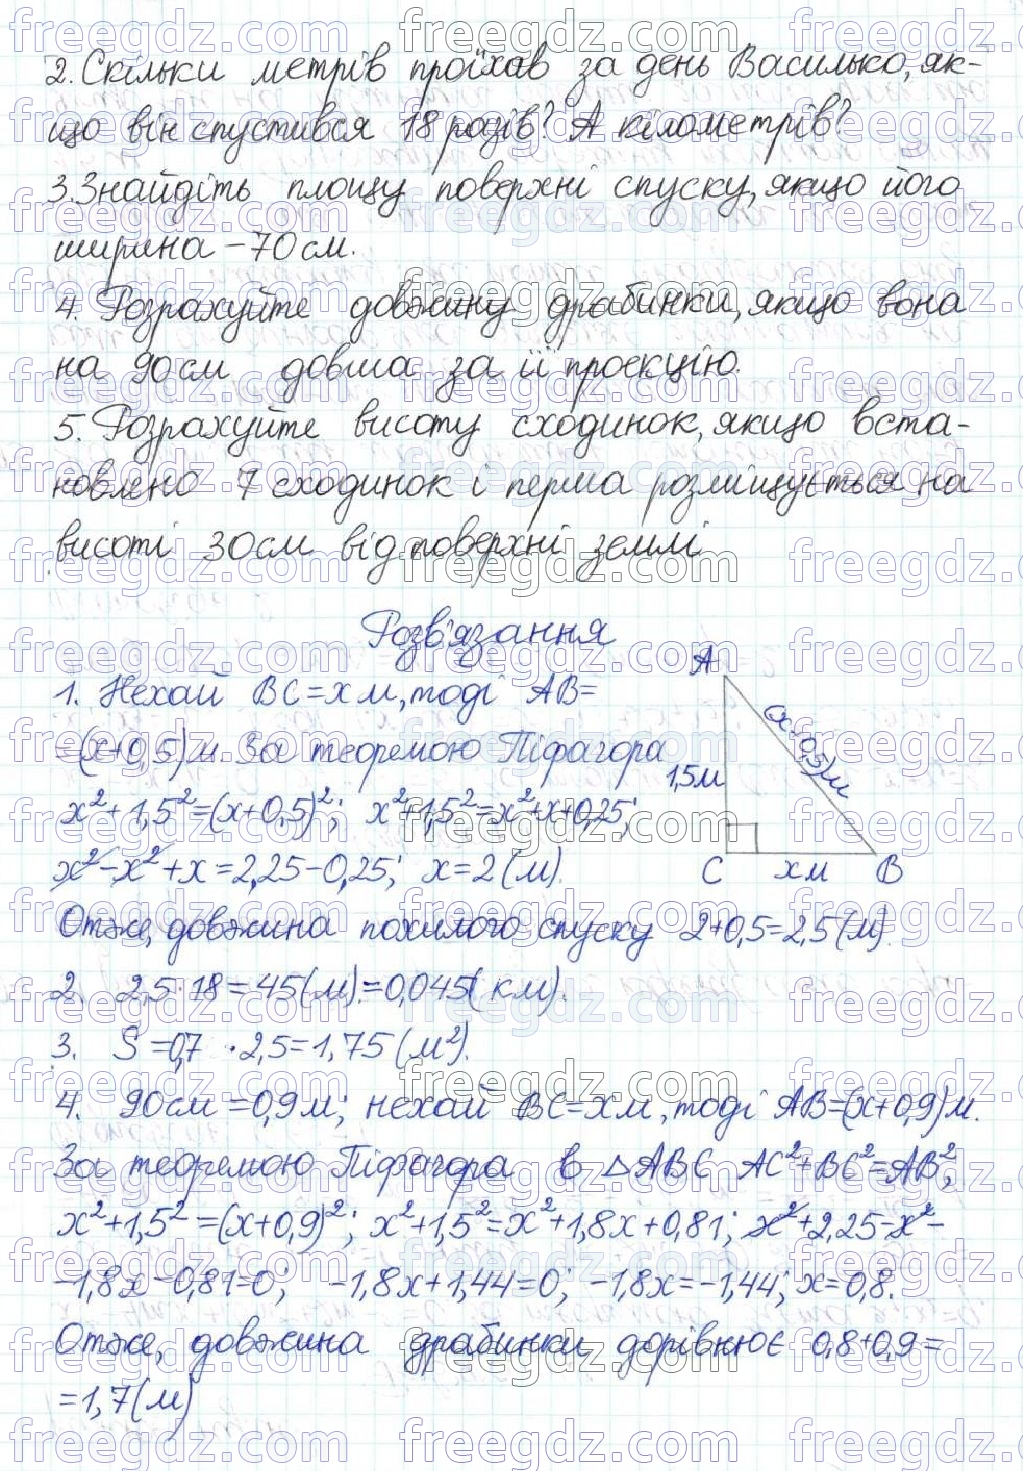 2. Скільки метрів проїхав за день Василько, як-
що він спустився 18 разів? А кілометрів?
3. Знайдіть площу поверхні спуску, якщо його
ширина – 70 см.
4. Розрахуйте довжину драбинки, якщо вона
на 90 см довша за її проекцію.
5. Розрахуйте висоту сходинок, якщо вста-
новлено 7 сходинок і перша розміщується на
висоті 30 см від поверхні землі
Розв'язання
1. Нехай BC = x м, тоді AB =
= (x+0,5) м. За теоремою Піфагора
x² + 1,5² = (x+0,5)²; x² + 1,5² = x² + x + 0,25;
x² - x² + x = 2,25 - 0,25; x = 2 (м).
A
(x+0,5) м
1,5 м
C x м B
Отже, довжина похилого спуску 2+0,5=2,5 (м).
2. 2,5 · 18 = 45 (м) = 0,045 (км).
3. S = 0,7 · 2,5 = 1,75 (м²).
4. 90 см = 0,9 м; нехай BC = x м, тоді AB = (x+0,9) м.
За теоремою Піфагора в △ABC AC² + BC² = AB²;
x² + 1,5² = (x+0,9)²; x² + 1,5² = x² + 1,8x + 0,81; x² + 2,25 - x² -
- 1,8x - 0,81 = 0; -1,8x + 1,44 = 0; -1,8x = -1,44; x = 0,8.
Отже, довжина драбинки дорівнює 0,8 + 0,9 =
= 1,7 (м)
freegdz.com